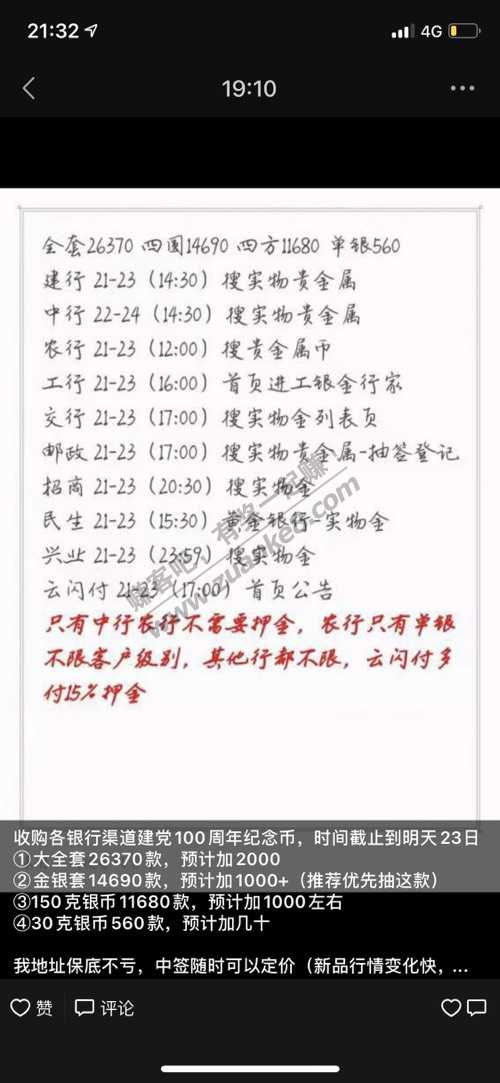 21:32
4G
19:10
全套26370 四圆14690 四方11680 单银560
建行 21-23（14:30）搜实物贵金属
中行 22-24（14:30）搜实物贵金属
农行 21-23（12:00）搜贵金属币
工行 21-23（16:00）首页进工银金行家
交行 21-23（17:00）搜实物金列表页
邮政 21-23（17:00）搜实物贵金属-抽签登记
招商 21-23（20:30）搜实物金
民生 21-23（15:30）黄金银行-实物金
兴业 21-23（23:59）搜实物金
云闪付 21-23（17:00）首页公告
赚客吧，有奖一起赚
www.zuanke8.com
只有中行农行不需要押金，农行只有单银
不限客户级别，其他行都不限，云闪付多
付15%押金
收购各银行渠道建党100周年纪念币，时间截止到明天23日
①大全套26370款，预计加2000
②金银套14690款，预计加1000+（推荐优先抽这款）
③150克银币11680款，预计加1000左右
④30克银币560款，预计加几十
我地址保底不亏，中签随时可以定价（新品行情变化快，...
赞 评论